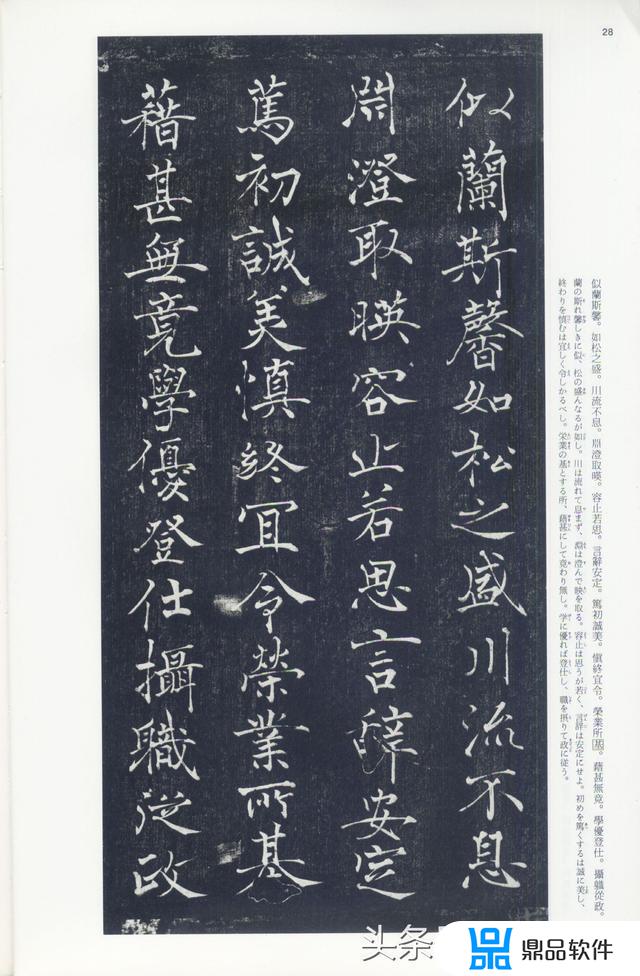 28
似蘭斯馨如松之盛川流不息
渊澄取暎容止若思言辭安定
篤初誠美慎終冝令榮業所基
藉甚無竟學優登仕攝職從政
似蘭斯馨。如松之盛。川流不息。淵澄取暎。容止若思。言辭安定。篤初誠美。愼終宜令。榮業所基。藉甚無竟。學優登仕。攝職從政。
蘭の斯れ馨しきに似、松の盛んなるが如し。川は流れて息まず、淵は澄んで映を取る。容止は思うが若く、言辞は安定にせよ。初めを篤くするは誠に美し、
終わりを慎むは宜しく令しかるべし。栄業の基とする所、藉甚にして竟わり無し。学に優れば登仕し、職を摂りて政に従う。
头条
鼎品软件